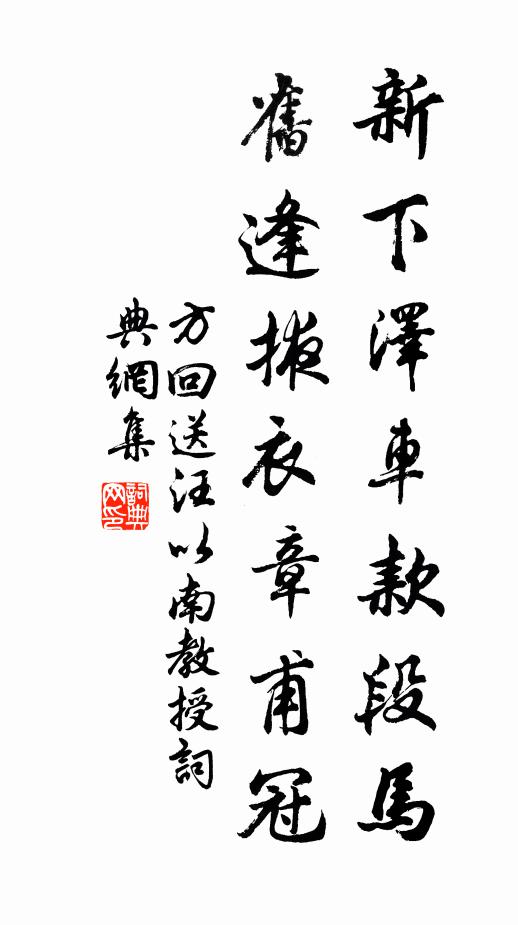 新下澤車款段馬
舊逢掖衣章甫冠
方回送汪以南教授詞
典網集
詞典
网印